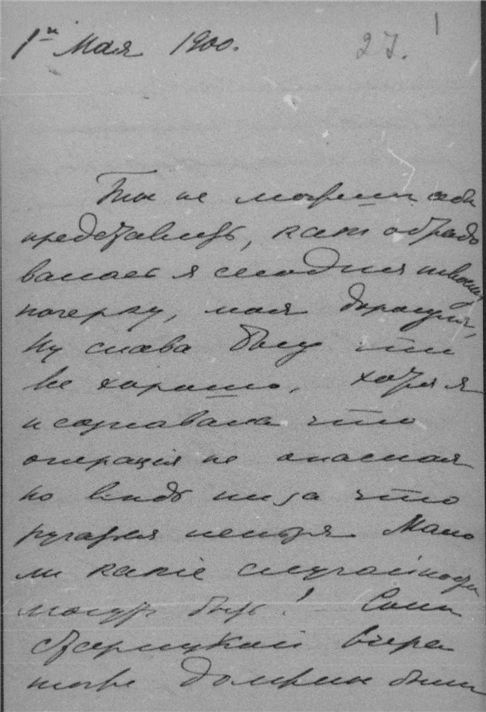 1го Мая 1900.
27. 1
Ты не можешь себе
представить, какъ обрадо
валась я сегодня твоему
почерку, моя дорогая,
Ну слава Богу что
все хорошо, хотя я
и сознавала что
операцiя не опасная
но вѣдь ни за что
ручаться нельзя Мало
ли какiе случайности
могутъ быть! – Сони
вчера
тоже должны были